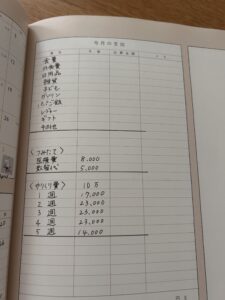 毎月の支出
食費
外食費
日用品
雑貨
子ども
ガソリン
レジャー
ギフト
その他
〈つみたて〉
医療費 8,000
5,000
〈やりくり費〉 10万
1 週 17,000
2 週 23,000
3 週 23,000
4 週 23,000
5 週 14,000